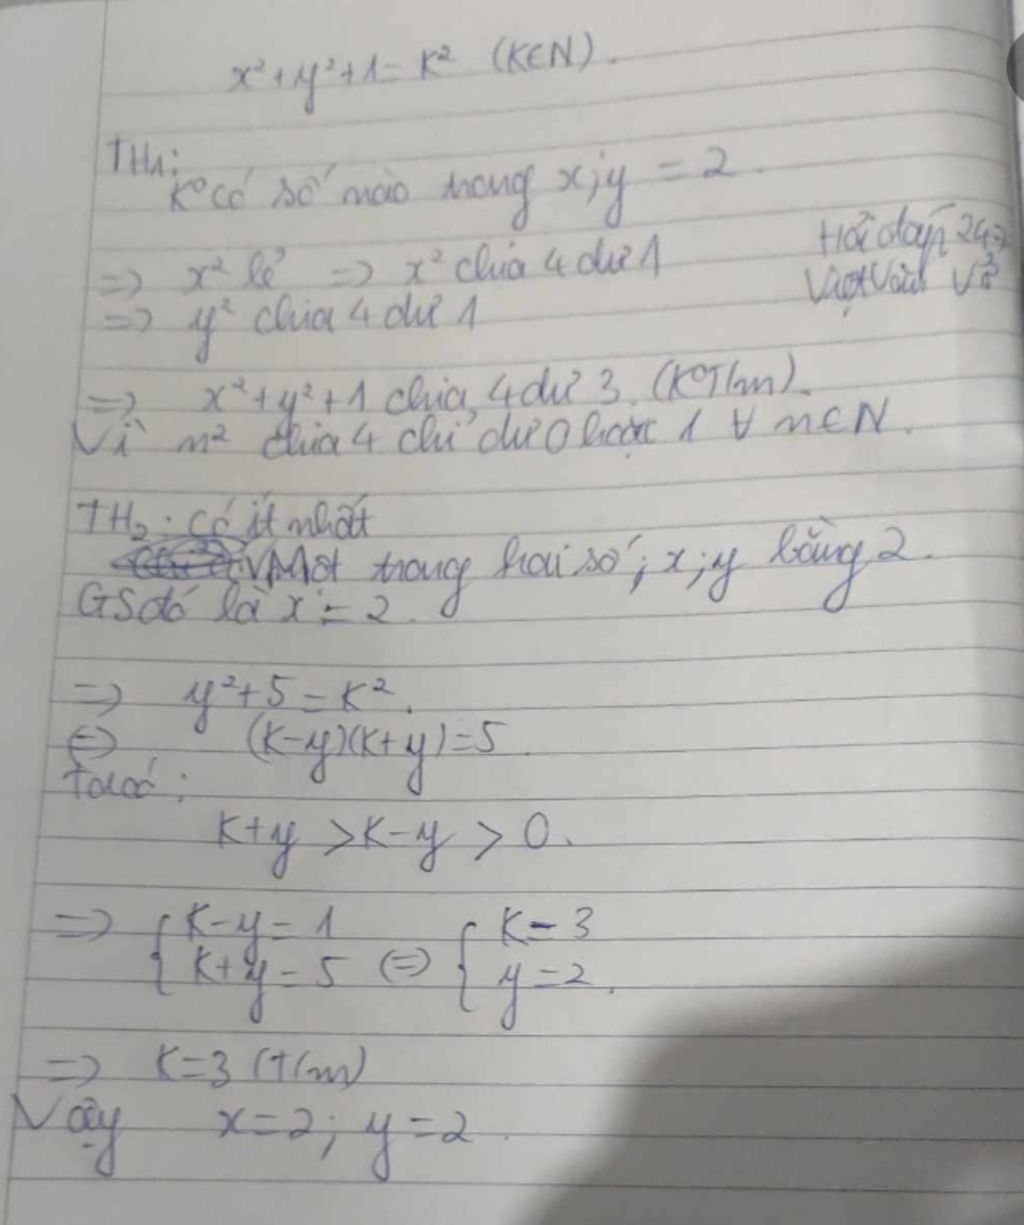 x²+y²+1=K² (K∈N).
TH₁:
K° có số nào trong x;y = 2.
=> x² lẻ => x² chia 4 dư 1
Hỏi đáp 247
=> y² chia 4 dư 1
=> x²+y²+1 chia 4 dư 3. (K°T/m).
Vì n² chia 4 chỉ dư 0 hoặc 1 ∀ n∈N.
TH₂: Có ít nhất
Một trong hai số; x;y bằng 2.
GS đó là x = 2.
=> y²+5=K².
<=> (K-y)(K+y)=5.
Ta có:
K+y > K-y > 0.
=> { K-y=1 { K=3
K+y=5 <=> y=2.
=> K=3 (T/m)
Vậy x=2; y=2.